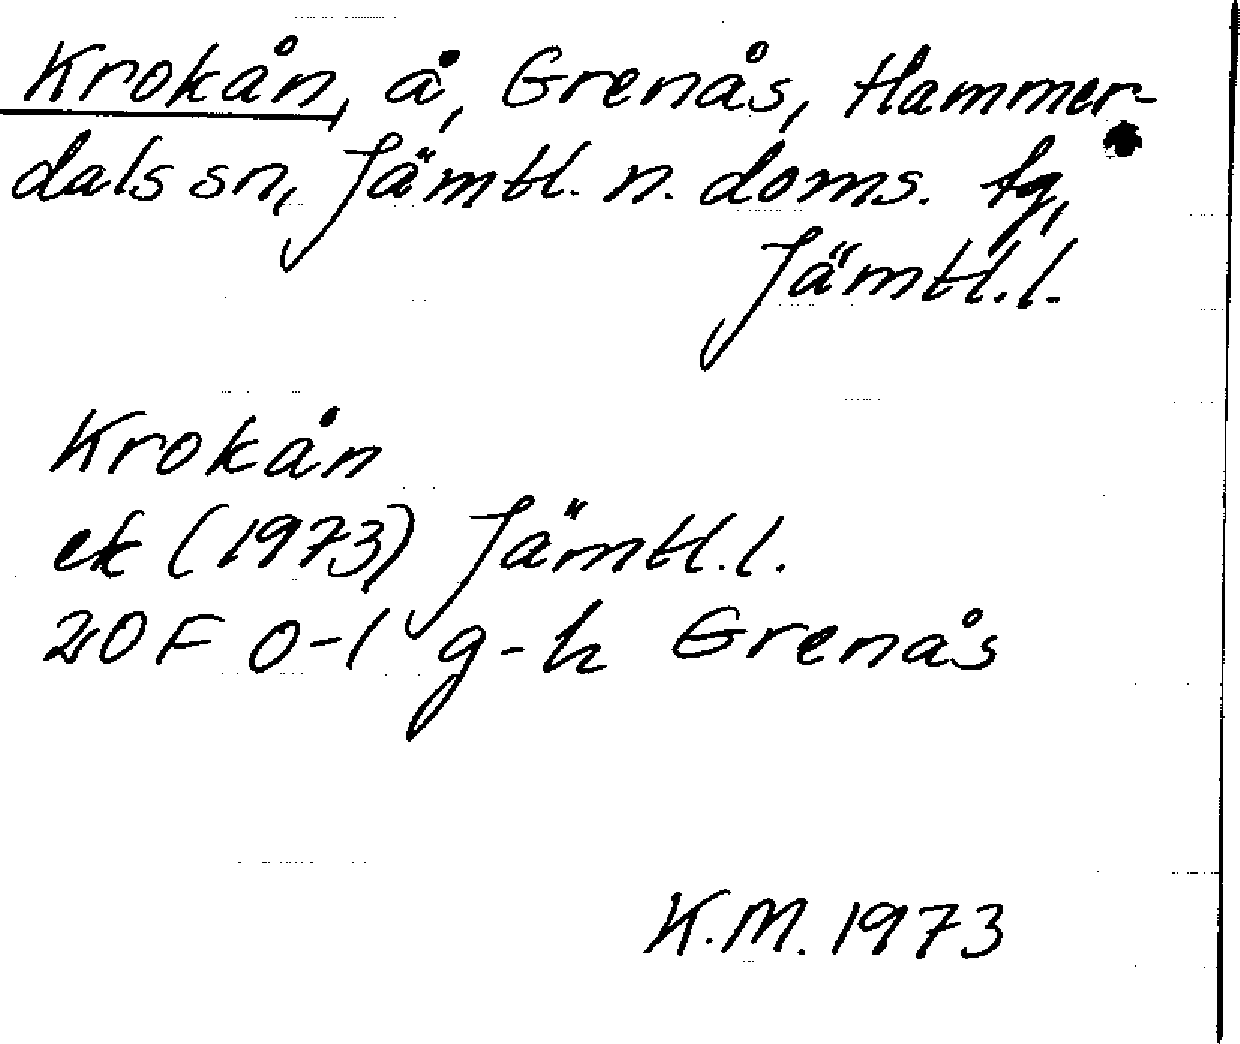 Krokån, å, Grenås, Hammer-
dals sn, Jämtl. n. doms. tg,
Jämtl. l.
Krokån
ek (1973) Jämtl. l.
20 F 0-1 g-h Grenås
K.M. 1973